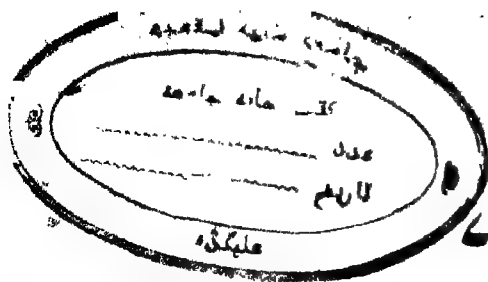 جامعه ملیه اسلامیه
کتب خانه جامعه
عدد
تاریخ
علیگڈه